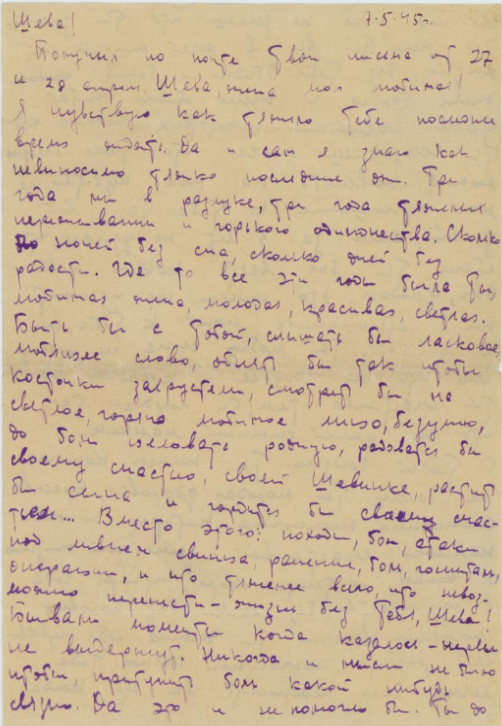 Шева! 7.5.45г.
Получил по почте твои письма от 27
и 28 апреля. Шева, жена моя любимая!
Я чувствую как тяжело тебе последнее
время ждать. Да и сам я знаю как
невыносимо тяжко последние дни. Три
года мы в разлуке, три года тяжелых
переживаний и горького одиночества. Сколько
ночей без сна, сколько дней без
радости. Где то все эти годы была ты,
любимая жена, молодая, красивая, светлая.
Быть бы с тобой, слышать бы ласковое,
любимое слово, обнять бы так чтобы
косточки захрустели, смотреть бы на
светлое, горячо любимое лицо, безумно,
до боли целовать родную, радоваться бы
своему счастью, своей Шевинке, растить
бы сына и гордится бы своим счас-
тьем... Вместо этого: походы, бои, атаки
под ливнем свинца, ранение, боли, госпиталь,
операции, и что тяжелее всего, что невоз-
можно перенести - жизнь без тебя, Шева!
Бывали моменты когда казалось - нервы
не выдержут. Никогда и мысли не было
чтобы, притупить боль какой нибудь
связью. Да это и не помогло бы. Ты до